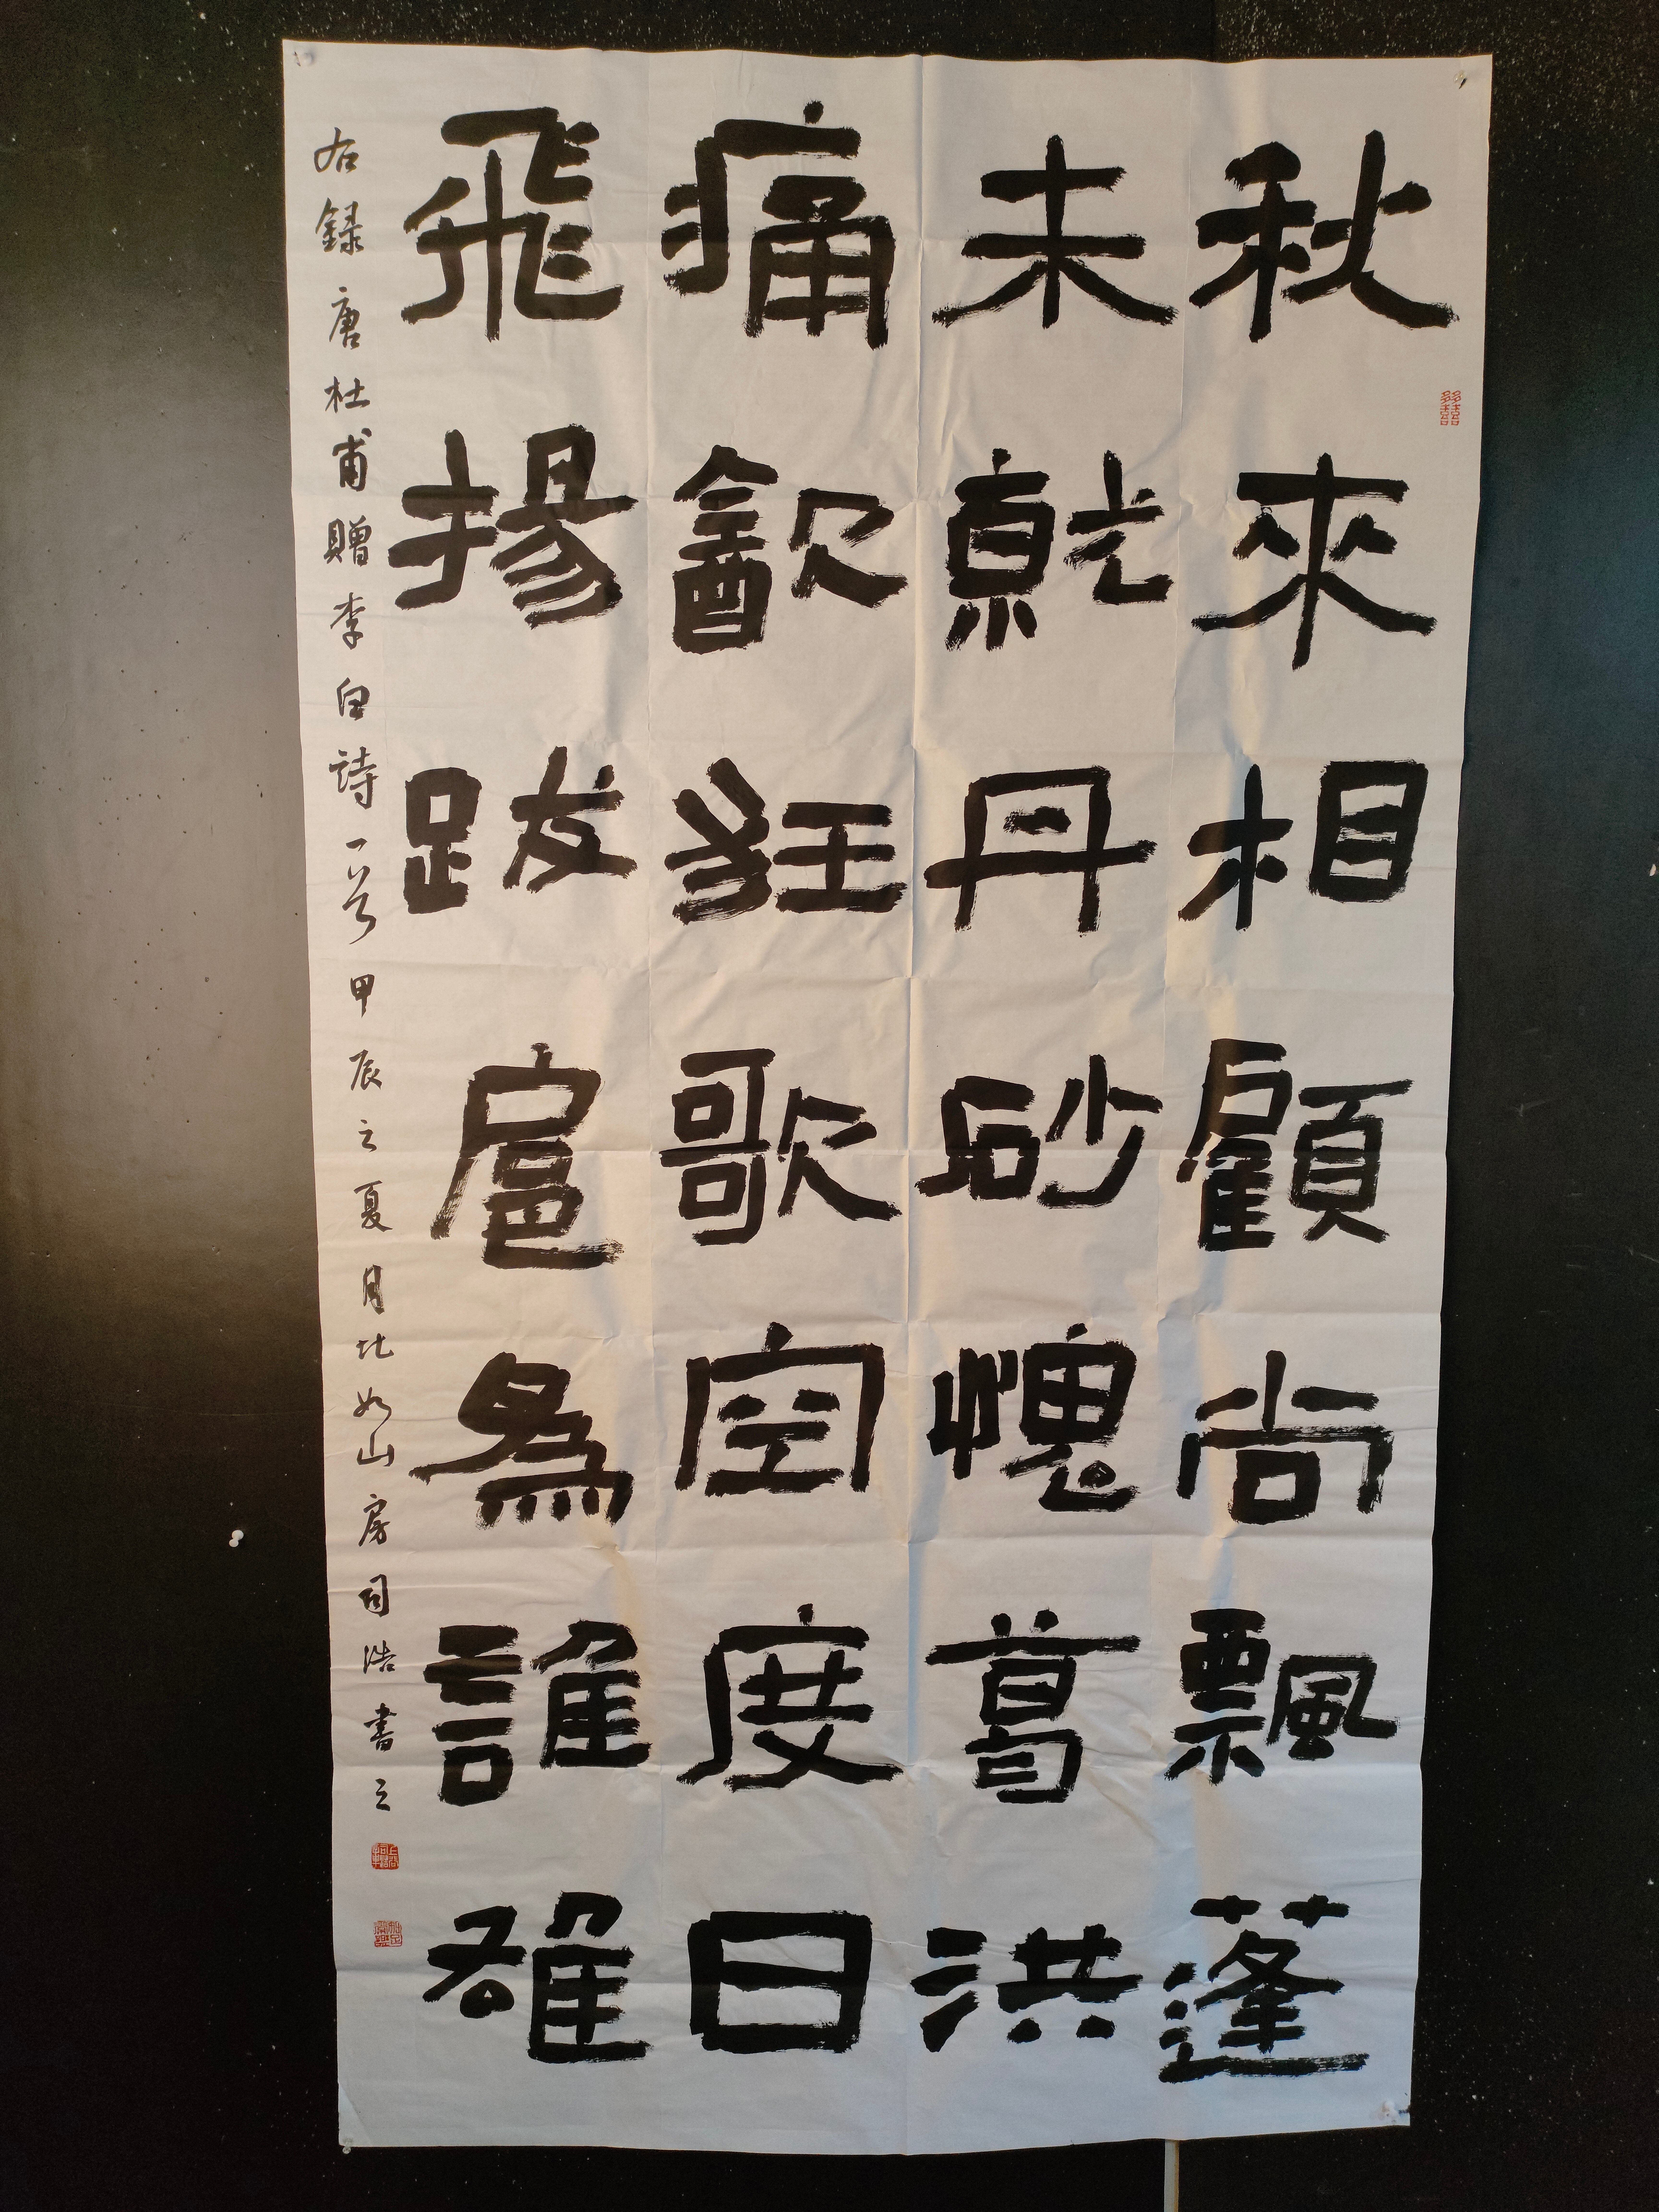 秋來相顧尚飄蓬
未就丹砂愧葛洪
痛飲狂歌空度日
飛揚跋扈為誰雄
右録唐杜甫贈李白詩一首甲辰之夏月於如山房司浩書之